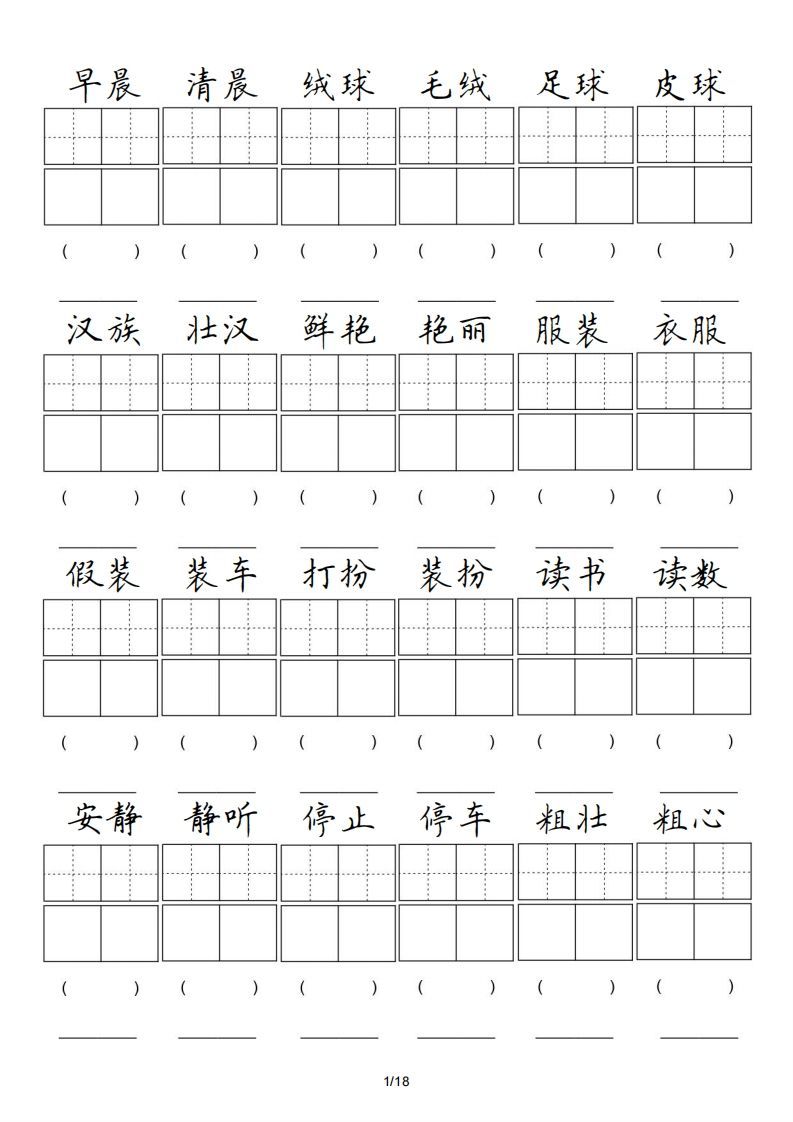 早晨 清晨 绒球 毛绒 足球 皮球
( ) ( ) ( ) ( ) ( ) ( )
汉族 壮汉 鲜艳 艳丽 服装 衣服
( ) ( ) ( ) ( ) ( ) ( )
假装 装车 打扮 装扮 读书 读数
( ) ( ) ( ) ( ) ( ) ( )
安静 静听 停止 停车 粗壮 粗心
( ) ( ) ( ) ( ) ( ) ( )
1/18